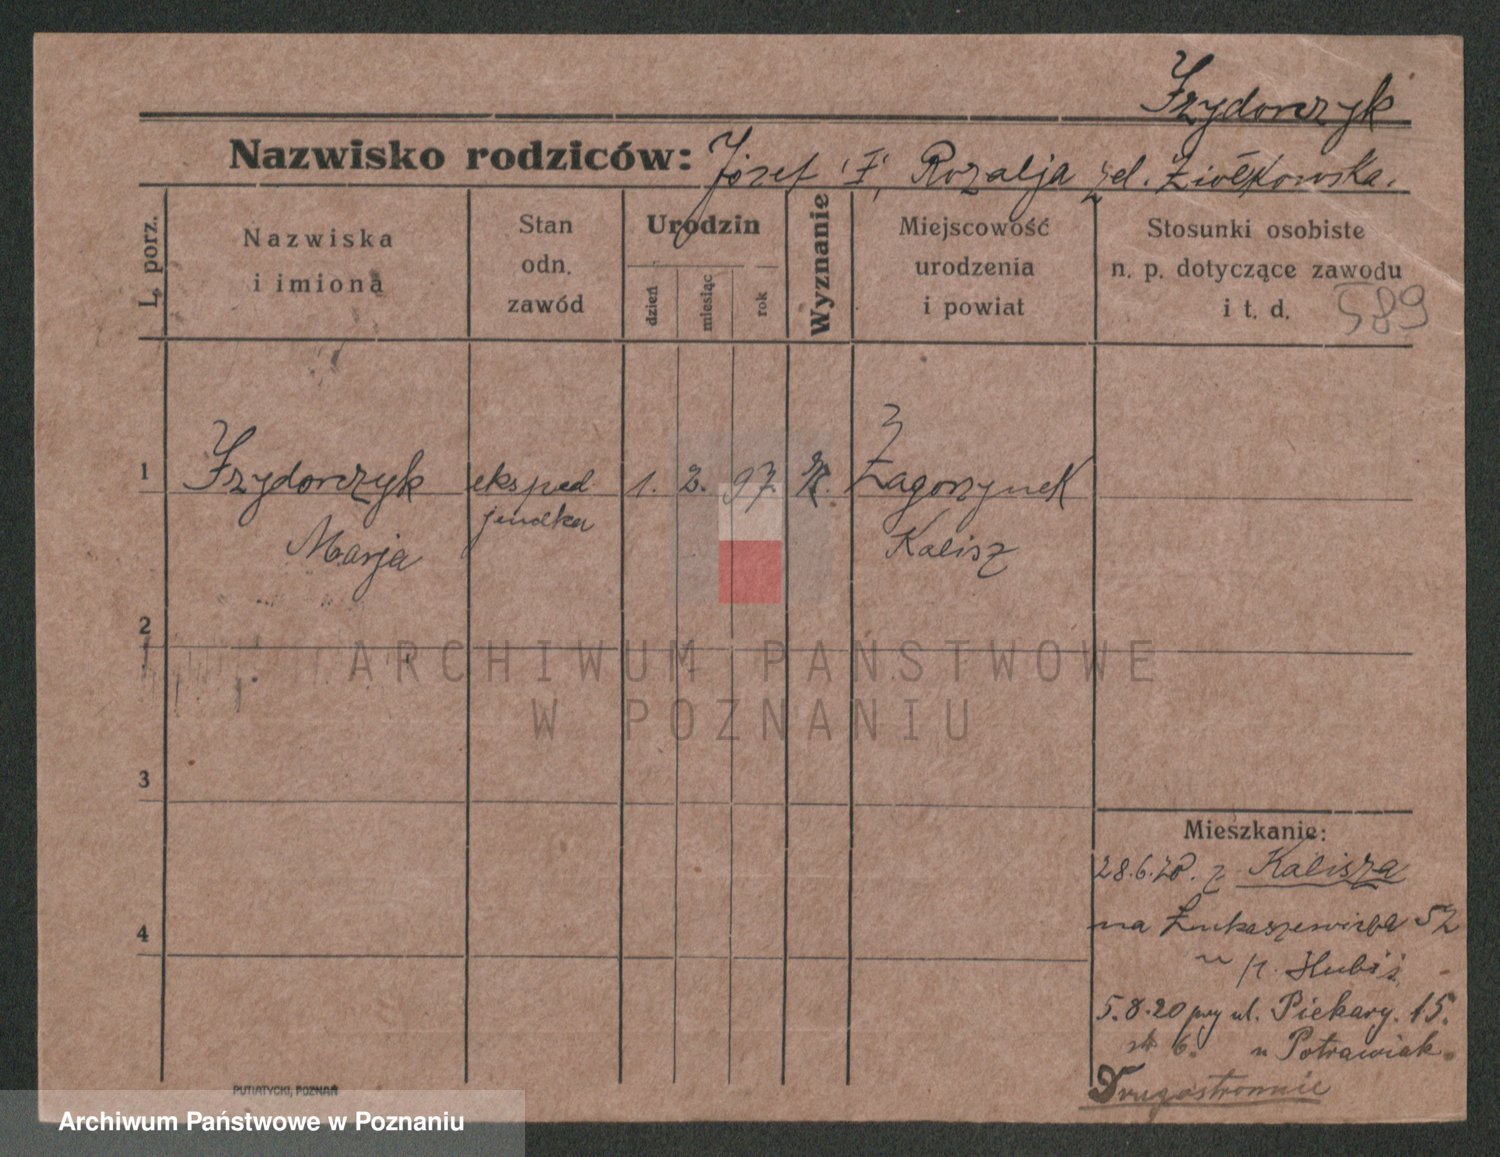 Izydorczyk
Nazwisko rodziców: Józef I, Rozalja zd. Ziółkowska.
L. porz.
Nazwiska
i imiona
Stan
odn.
zawód
Urodzin
dzień
miesiąc
rok
Wyznanie
Miejscowość
urodzenia
i powiat
Stosunki osobiste
n. p. dotyczące zawodu
i t. d.
589
1
Izydorczyk
Marja
eksped
jentka
1. 2. 97
Zagorzynek
Kalisz
2
ARCHIWUM PAŃSTWOWE
W POZNANIU
3
4
Mieszkanie:
28.6.20. z Kalisza
na Łukaszewicza
p.
5.8.20 przy ul. Piekary. 15.
6. u Potrawiak.
Drugostronnie
PUTIATYCKI, POZNAŃ
Archiwum Państwowe w Poznaniu